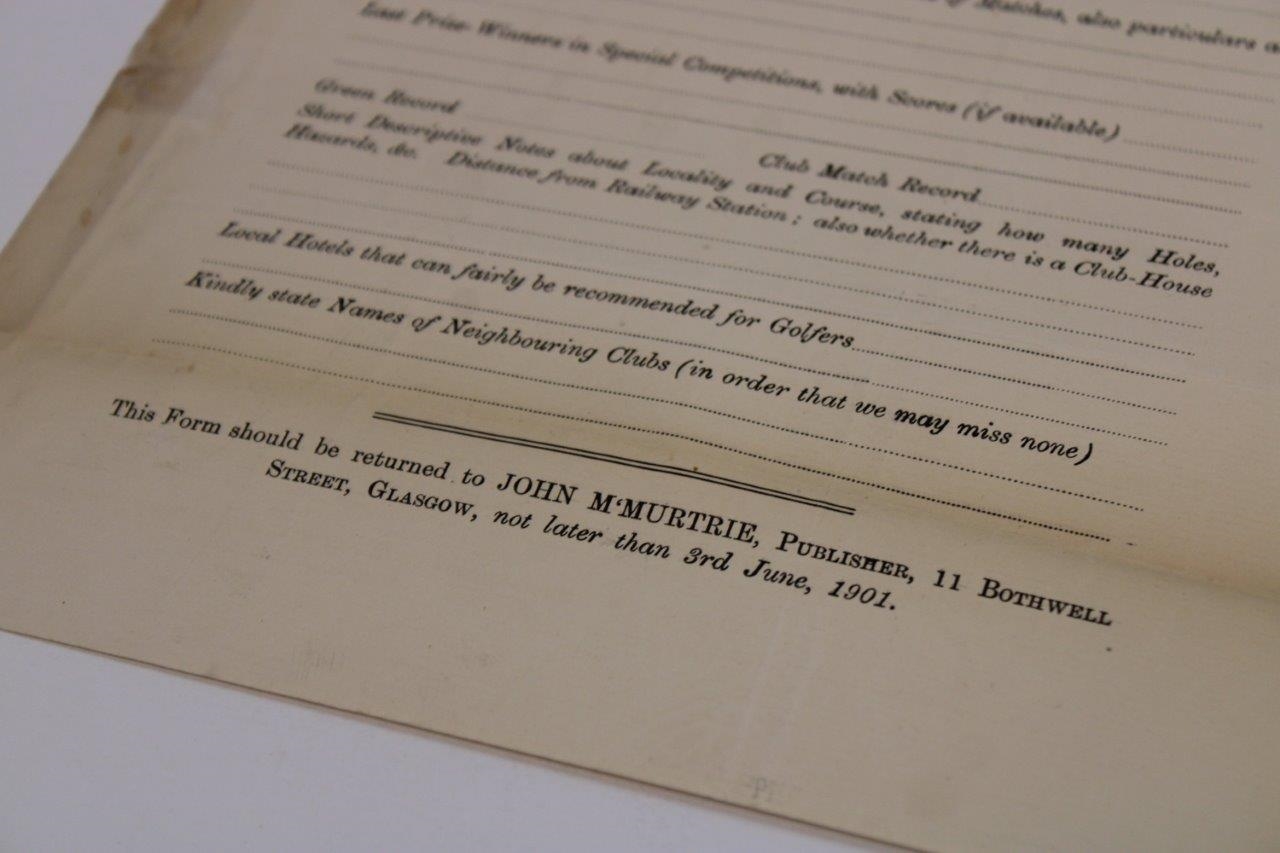 of Matches, also particulars
Last Prize-Winners in Special Competitions, with Scores (if available)
Green Record
Club Match Record
Short Descriptive Notes about Locality and Course, stating how many Holes,
Hazards, &c. Distance from Railway Station; also whether there is a Club-House
Local Hotels that can fairly be recommended for Golfers
Kindly state Names of Neighbouring Clubs (in order that we may miss none)
This Form should be returned to JOHN M‘MURTRIE, PUBLISHER, 11 BOTHWELL
STREET, GLASGOW, not later than 3rd June, 1901.